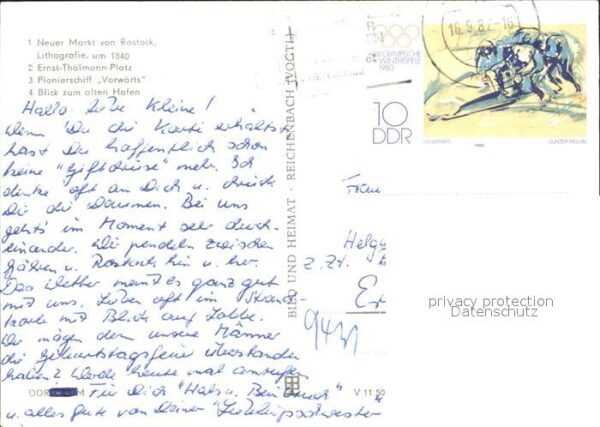 1 Neuer Markt von Rostock,
Lithografie, um 1840
2 Ernst-Thälmann-Platz
3 Pionierschiff „Vorwärts"
4 Blick zum alten Hafen
Hallo liebe Kleine!
Wenn Du die Karte erhältst
hast Du hoffentlich schon
keine "Giftdrüse" mehr. Ich
denke oft an Dich u. drück
Dir die Daumen. Bei uns
geht's im Moment sehr durch-
einander. Wir pendeln zwischen
u. Rostock hin u. her.
Das Wetter meint es ganz gut
mit uns. oft im Strand-
korb mit Blick auf
Wie mögen denn unsere Männer
die Geburtstagsfeier überstanden
haben? Werde heute mal anrufen
Für Dich "Hals u. Beinbruch"
u. alles Gute von Deiner "Lieblingsschwester"
BILD UND HEIMAT · REICHENBACH (VOGTL)
V 11 50
16.8.82-16
XIII. OLYMPISCHE
WINTERSPIELE
1980
10
DDR
1980
Frau
Helga
z. Zt.
9431
privacy protection
Datenschutz